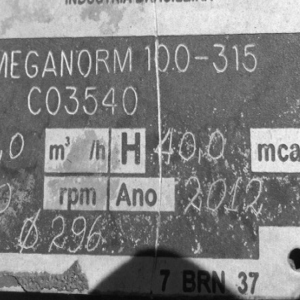 INDÚSTRIA BRASILEIRA
MEGANORM 100-315
C03540
,0 m³/h H 40,0 mca
0 rpm Ano 2012
Ø 296
7 BRN 37